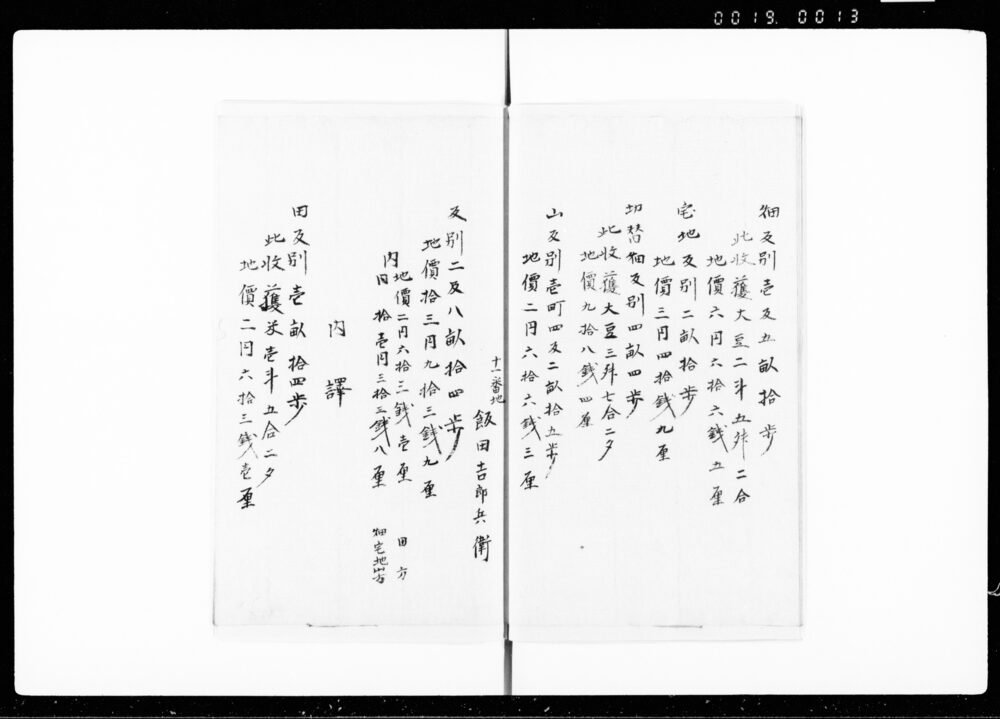 0019.0013
畑反別壱反五畝拾歩
此收獲大豆二斗五舛二合
地價六円六拾六銭五厘
宅地反別二畝拾歩
地價三円四拾銭九厘
切替畑反別四畝四歩
此收獲大豆三舛七合二夕
地價九拾八銭四厘
山反別壱町四反二畝拾五歩
地價二円六拾六銭三厘
十一番地
飯田吉郎兵衛
反別二反八畝拾四歩
地價拾三円九拾三銭九厘
内地價二円六拾三銭壱厘 田方
円拾壱円三拾三銭八厘 畑宅地山方
内譯
田反別壱畝拾四歩
此收獲米壱斗五合二夕
地價二円六拾三銭壱厘